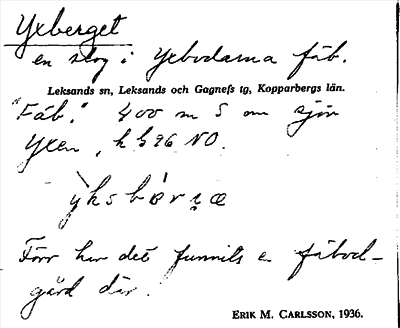 Yxberget
en skog i Yxbodarna fäb.
Leksands sn, Leksands och Gagnefs tg, Kopparbergs län.
"Fäb." 400 m S om sjön
Yxen, k 96 NO.
Förr har det funnits en fäbod-
gård där.
ERIK M. CARLSSON, 1936.